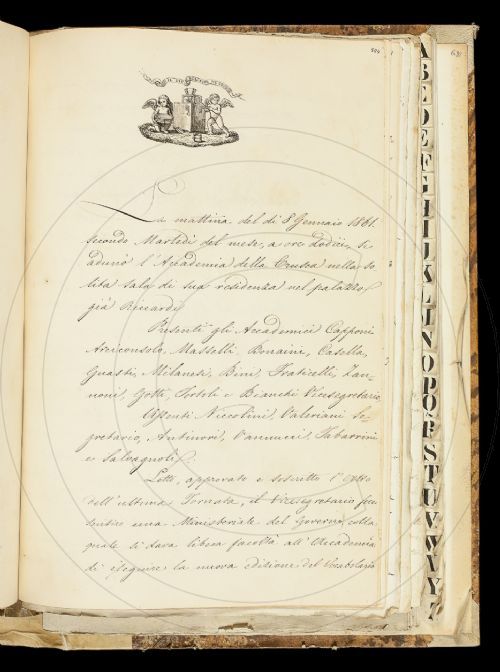 La mattina del dì 8 Gennaio 1861.
secondo Martedì del mese, a ore dodici, si
adunò l'Accademia della Crusca nella so
lita sala di sua residenza nel palazzo
già Riccardi
Presenti gli Accademici Capponi
Arciconsolo, Masselli, Bonaini, Casella,
Guasti, Milanesi, Bini, Fraticelli, Zan-
noni, Gotti, Tortoli e Bianchi Vicesegretario
Assenti Niccolini, Valeriani Se-
gretario, Antinori, Vannucci, Tabarrini
e Salvagnoli.
Letto, approvato e soscritto l'Atto
dell'ultima Tornata, il Vicesegretario fece
sentire una Ministeriale del Governo, colla
quale si dava libera facoltà all'Accademia
di eseguire la nuova edizione del Vocabolario
A
B
E
D
E
F
G
H
I
J
K
L
M
N
O
P
Q
R
S
T
U
V
W
Y
Z